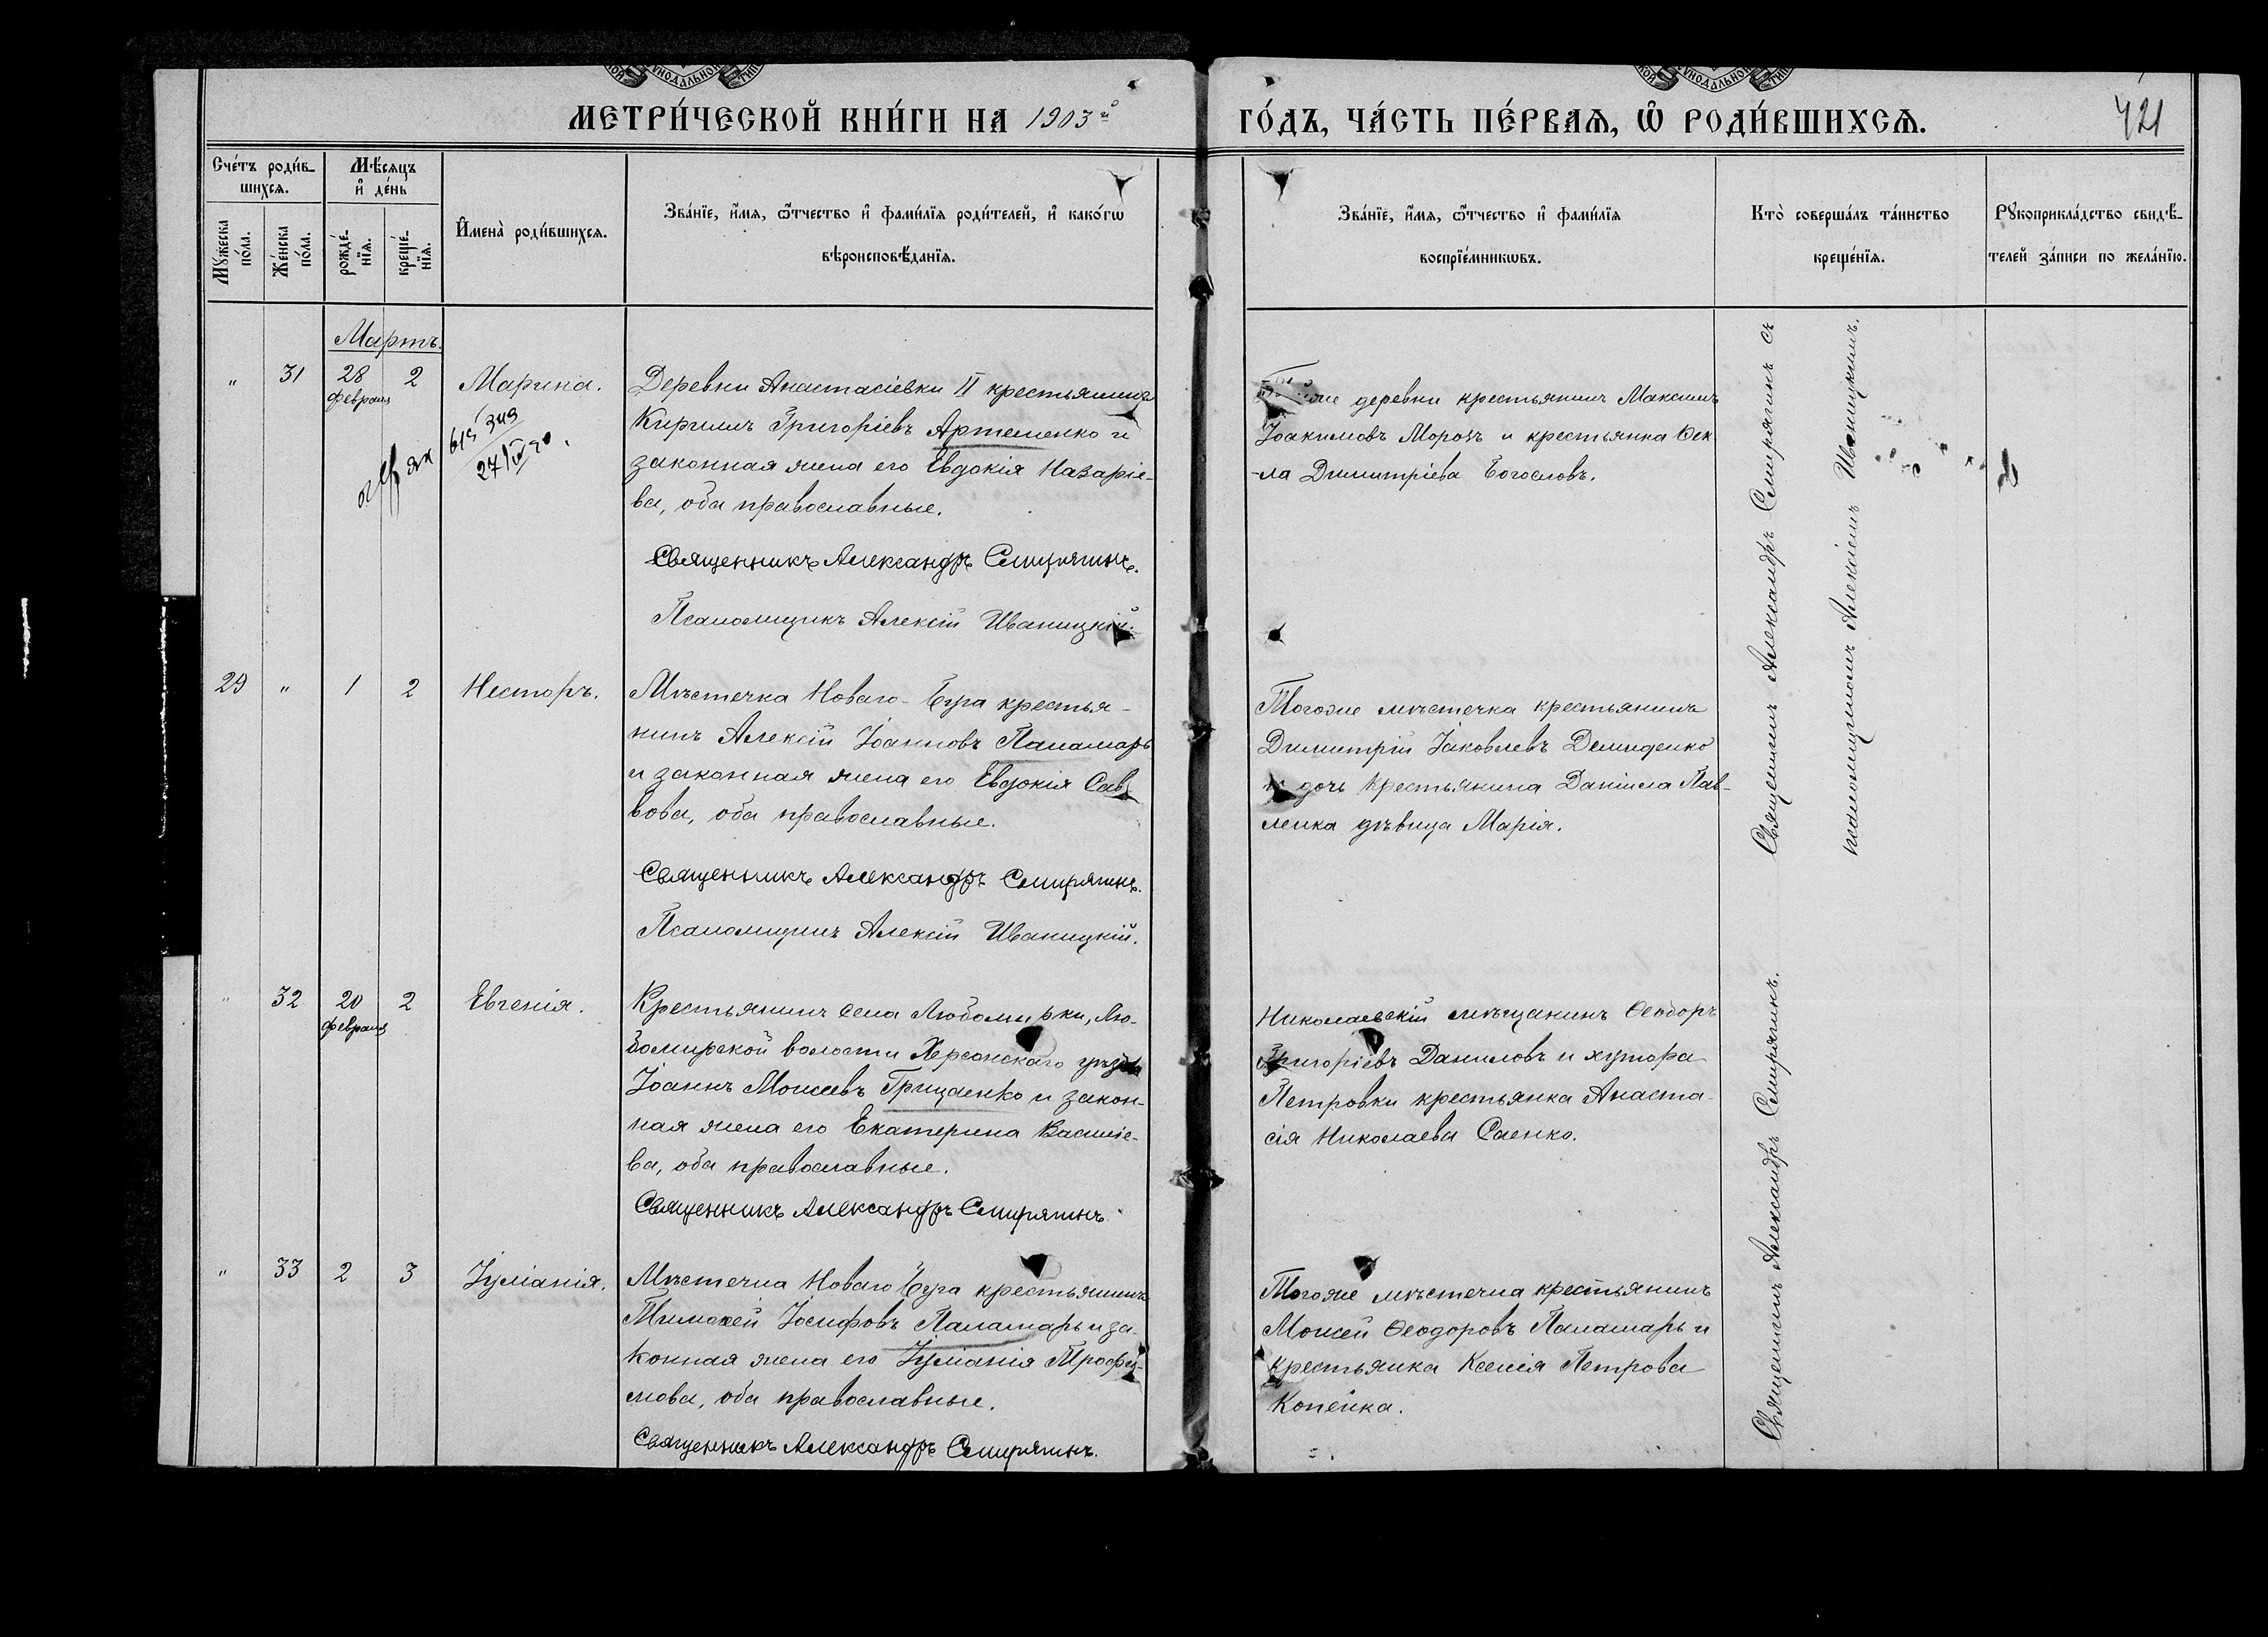 МЕТРИ́ЧЕСКОЙ КНИ́ГИ НА 1903й
ГО́ДЪ, ЧА́СТЬ ПЕ́РВАѦ, Ѡ҆ РОДИ́ВШИХСѦ.
421
Сче́тъ роди́в-
шихсѧ.
Мѣ́сѧцъ
и҆ де́нь
Мꙋ́жеска
по́ла.
Же́нска
по́ла.
рожде́-
нїѧ.
креще́-
нїѧ.
И҆мена̀ роди́вшихсѧ.
Зва́нїе, и҆́мѧ, ѻ҆́тчество и҆ фами́лїѧ роди́телей, и҆ како́гѡ
вѣроисповѣ́данїѧ.
Зва́нїе, и҆́мѧ, ѻ҆́тчество и҆ фами́лїѧ
воспрїе́мникѡвъ.
Кто̀ соверша́лъ та́инство
креще́нїѧ.
Рꙋкоприкла́дство свидѣ́-
телей за́писи по жела́нїю.
Мартъ.
" 31 28 2 Марина.
февраля
27/IV
Деревни Анастасіевки II крестьянинъ
Кириллъ Григоріевъ Артеменко и
законная жена его Евдокія Назаріе-
ва, оба православные.
Священникъ Александръ Смирягинъ.
Псаломщикъ Алексій Иваницкій.
же деревни крестьянинъ Максимъ
Іоакимовъ Морозъ и крестьянка Ѳек-
-ла Димитріева Богословъ.
Священникъ Александръ Смирягинъ съ
псаломщикомъ Алексіемъ Иваницкимъ.
29 " 1 2 Несторъ.
Мѣстечка Новаго-Буга крестья-
нинъ Алексій Іоанновъ Паламарь
и законная жена его Евдокія Сав-
вова, оба православные.
Священникъ Александръ Смирягинъ.
Псаломщикъ Алексій Иваницкій.
Тогоже мѣстечка крестьянинъ
Димитрій Іаковлевъ Демиденко
и дочь крестьянина Даніила Пав-
ленка дѣвица Марія.
" 32 20 2 Евгенія.
февраля
Крестьянинъ села Любомирки, Лю-
бомирской волости Херсонскаго уѣзда
Іоаннъ Моисеевъ Грицаенко и закон-
ная жена его Екатерина Василіе-
ва, оба православные.
Священникъ Александръ Смирягинъ.
Николаевскій мѣщанинъ Ѳеодоръ
Григоріевъ Даниловъ и хутора
Петровки крестьянка Анаста-
сія Николаева Саенко.
Священникъ Александръ Смирягинъ.
" 33 2 3 Іуліанія.
Мѣстечка Новаго Буга крестьянинъ
Тимоѳей Іосифовъ Паламарь и за-
конная жена его Іуліанія Трофи-
мова, оба православные.
Священникъ Александръ Смирягинъ.
Тогоже мѣстечка крестьянинъ
Моисей Ѳеодоровъ Паламарь и
крестьянка Ксенія Петрова
Копейка.